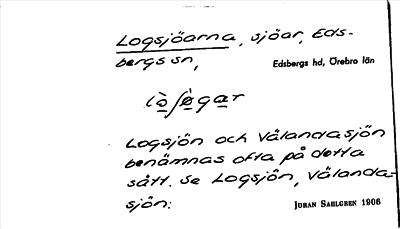 Logsjöarna, sjöar, Eds-
bergs sn,
Edsbergs hd, Örebro län
Logsjön och Välandasjön
benämnas ofta på detta
sätt. Se Logsjön, Välanda-
sjön.
JÖRAN SAHLGREN 1906